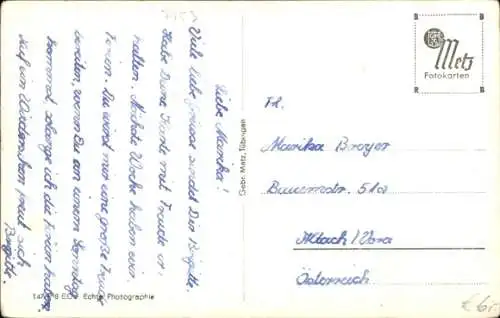 Liebe Marika!
Viele liebe Grüsse sendet Dir Brigitte.
Habe Deine Karte mit Freude er-
halten. Nächste Woche haben wir
Ferien. Du wirst mir eine große Freude
bereiten, wenn Du an einem Sonntag
kommst, solange ich die Ferien habe.
Auf ein Wiedersehen freut sich
Brigitte.
Echte Photographie
Gebr. Metz, Tübingen
Metz
Fotokarten
Frl.
Marika Broger
Bauernstr. 51a
Altach / Vora
Österreich
€ 6,-